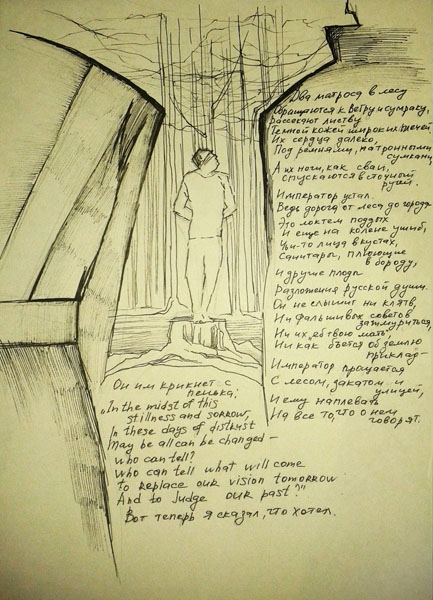 Два матроса в лесу
Обращаются к ветру и сумраку,
Рассекают листву
Темной кожей широких плечей
Их сердца далеко,
Под ремнями, патронными
сумками
А их ноги, как сваи,
спускаются в сточный
ручей.
Император устал.
Ведь дорога от леса до города
Это локтем поддых
И еще на колене ушиб,
Чьи-то лица в кустах,
Санитары, плюющие
в бороду,
И другие плоды
Разложения русской души.
Он не слышит ни клятв,
Ни фальшивых советов
зажмуриться,
Ни их "ебтвою мать",
Ни как бьется об землю
приклад—
Император прощается
С лесом, закатом и
улицей,
И ему наплевать
На все то, что о нем
говорят.
Он им крикнет с
пенька:
"In the midst of this
stillness and sorrow,
In these days of distrust
May be all can be changed —
who can tell?
Who can tell what will come
to replace our vision tomorrow
And to judge our past?"
Вот теперь я сказал, что хотел.